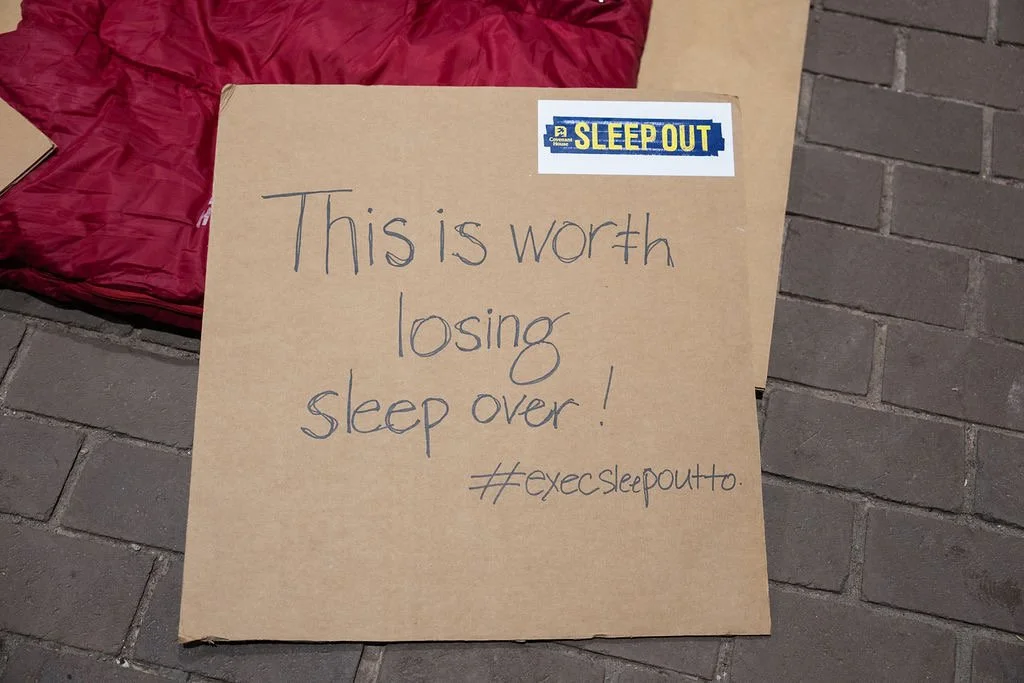 Covenant
House
SLEEP OUT
This is worth
losing
sleep over!
#execsleepoutto.